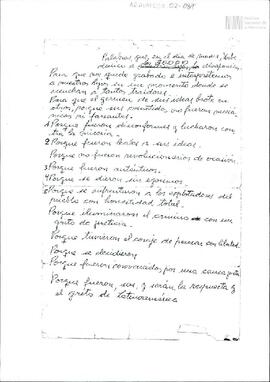 Palabras que, en el día de
dedico a los 30000
Para que quede grabado e interpretemos
a nuestros hijos en un momento donde se
escuchan a tantos traidores
Para que el germen de sus ideas brote en
otros, porque su permitido, no fueron
ni farsantes.
1 Porque fueron disconformes y lucharon con
tra la injusticia
2 Porque fueron leales a su ideal
Porque no fueron revolucionarios de ocasión
3 Porque fueron auténticos
4 Porque se dieron sin egoísmos
5 Porque se enfrentaron a los explotadores del
pueblo con honestidad total.
Porque eliminaron el con un
grito de justicia.
Porque tuvieron el coraje de pensar con libertad
Porque se decidieron
Porque fueron convocados por una causa justa
Porque fueron, son, y serán la respuesta y
el grito de Latinoamérica